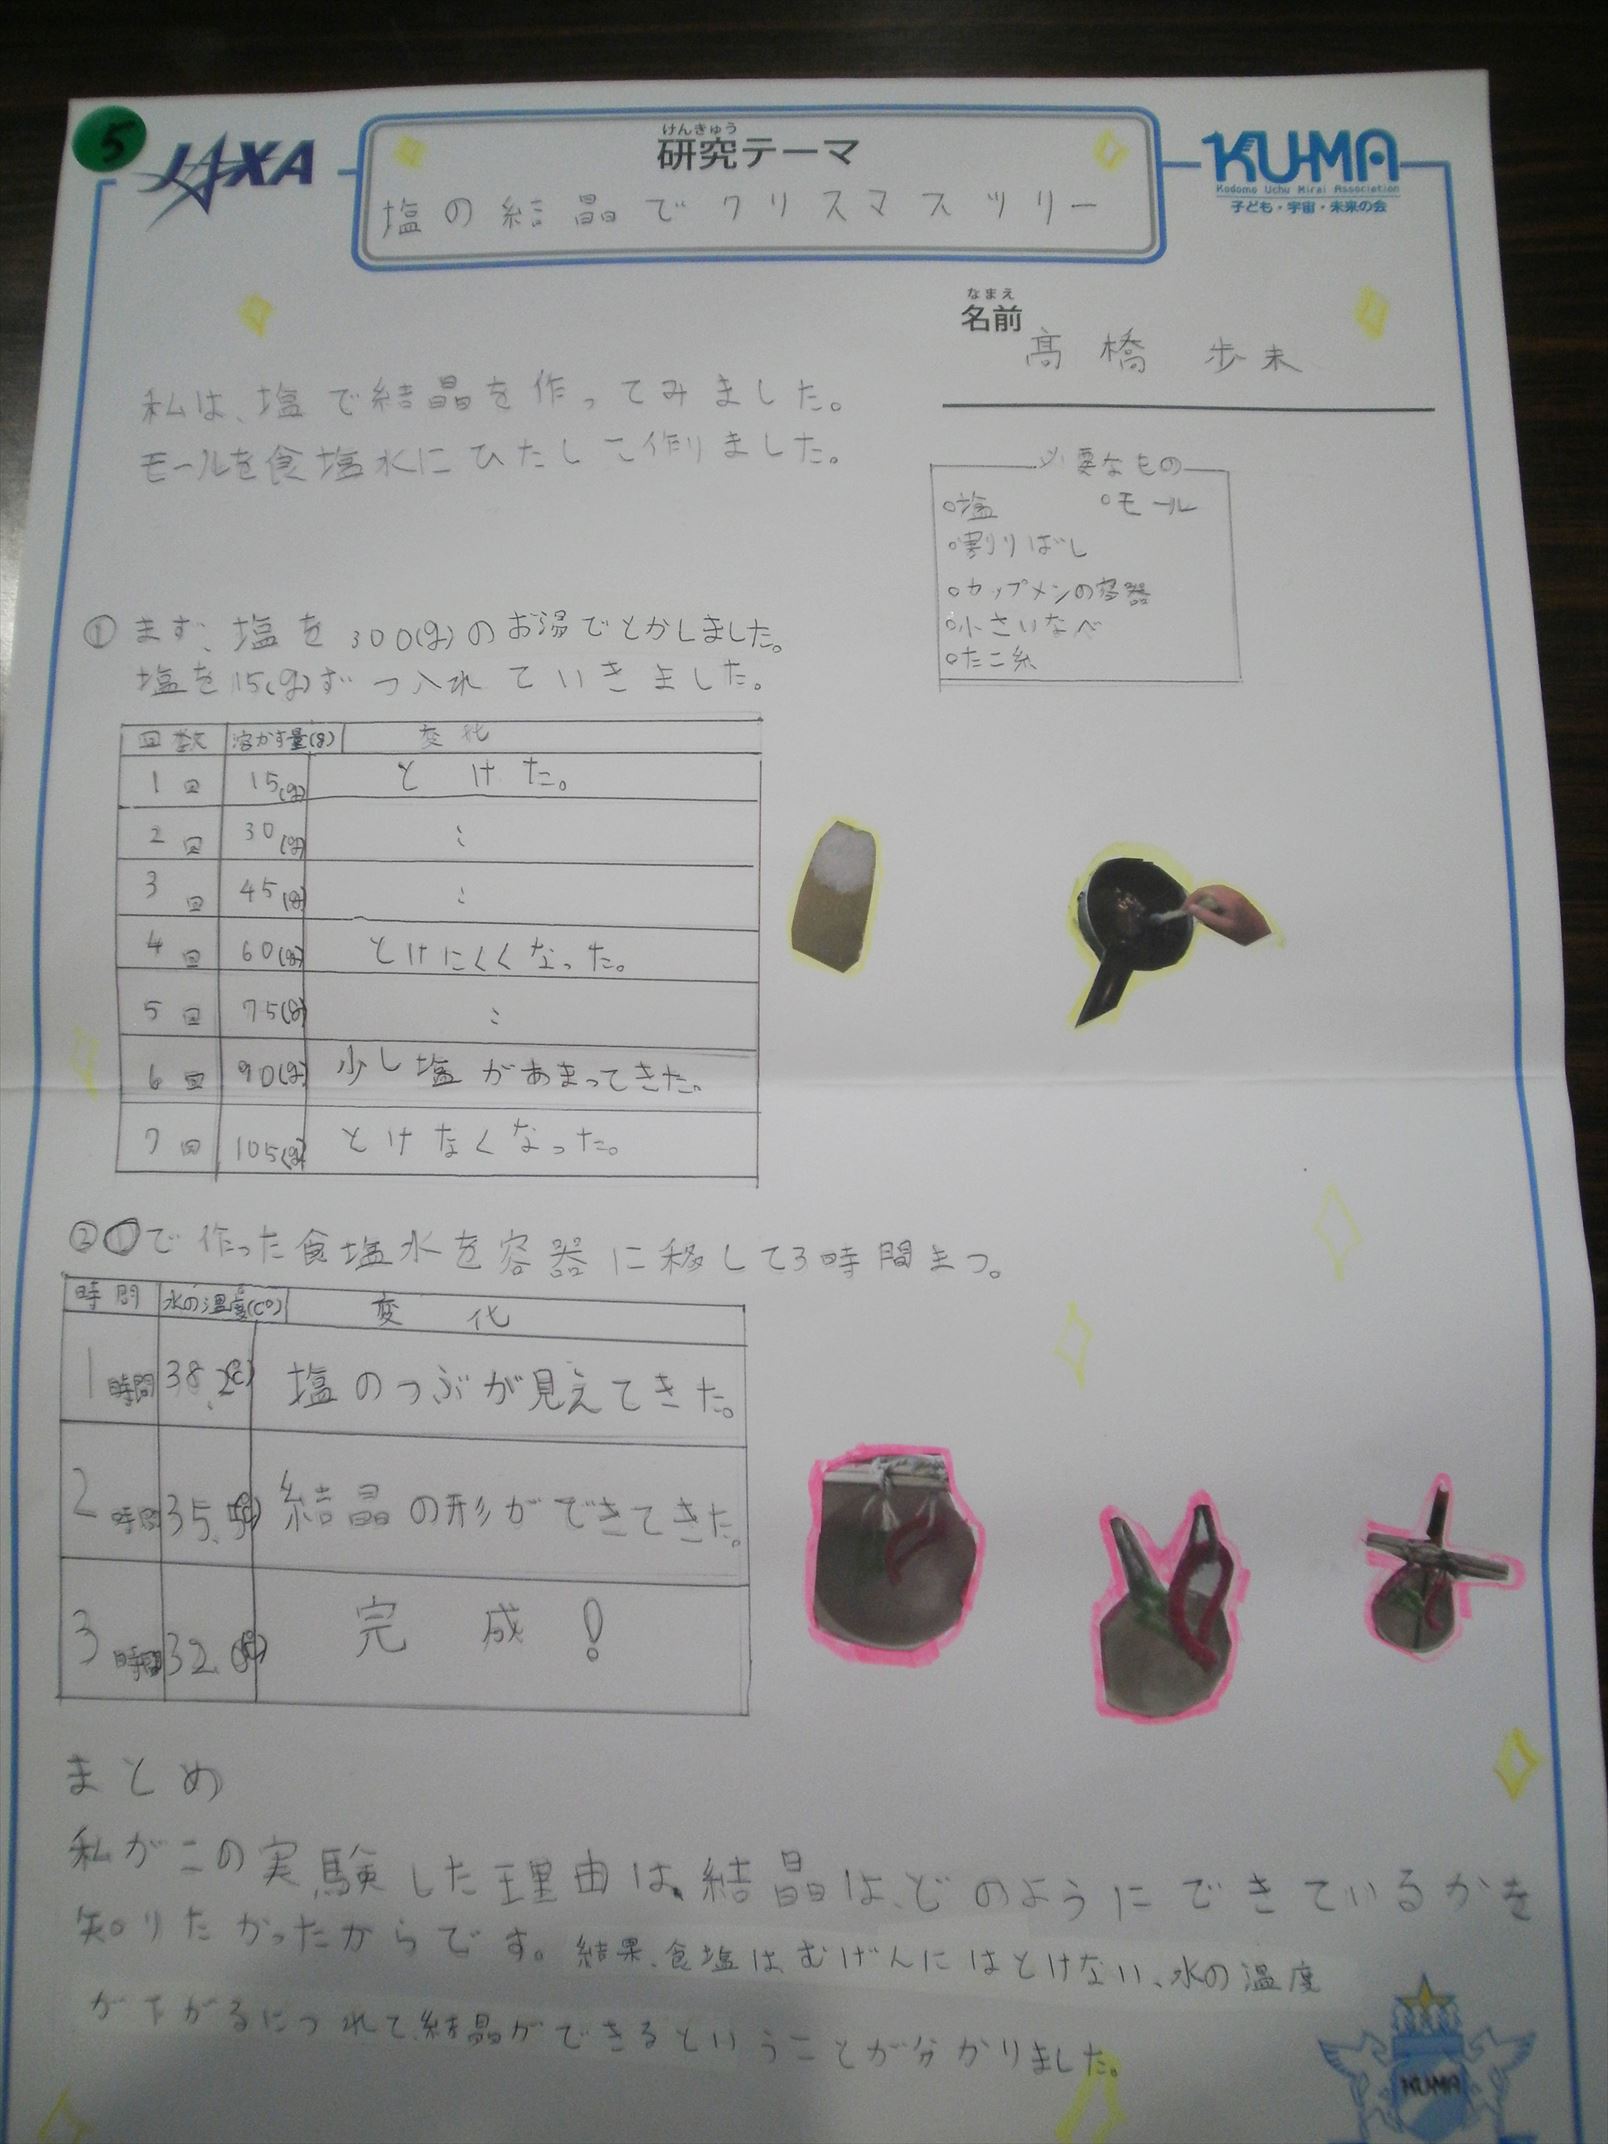 5
JAXA
けんきゅう
研究テーマ
塩の結晶でクリスマスツリー
KU-MA
Kodomo Uchu Mirai Association
子ども・宇宙・未来の会
なまえ
名前
髙橋 歩未
私は、塩で結晶を作ってみました。
モールを食塩水にひたして作りました。
必要なもの
○塩 ○モール
○割りばし
○カップメンの容器
○小さいなべ
○たこ糸
① まず、塩を300(g)のお湯でとかしました。
塩を15(g)ずつ入れていきました。
回数 溶かす量(g) 変化
1回 15(g) とけた。
2回 30(g) 〃
3回 45(g) 〃
4回 60(g) とけにくくなった。
5回 75(g) 〃
6回 90(g) 少し塩があまってきた。
7回 105(g) とけなくなった。
②①で作った食塩水を容器に移して3時間まつ。
時間 水の温度(C°) 変化
1時間 38.2(℃) 塩のつぶが見えてきた。
2時間 35.5(℃) 結晶の形ができてきた。
3時間 32.0(℃) 完成!
まとめ
私がこの実験した理由は、結晶は、どのようにできているかを
知りたかったからです。結果、食塩は、むげんにはとけない、水の温度
が下がるにつれて、結晶ができるということが分かりました。
KUMA